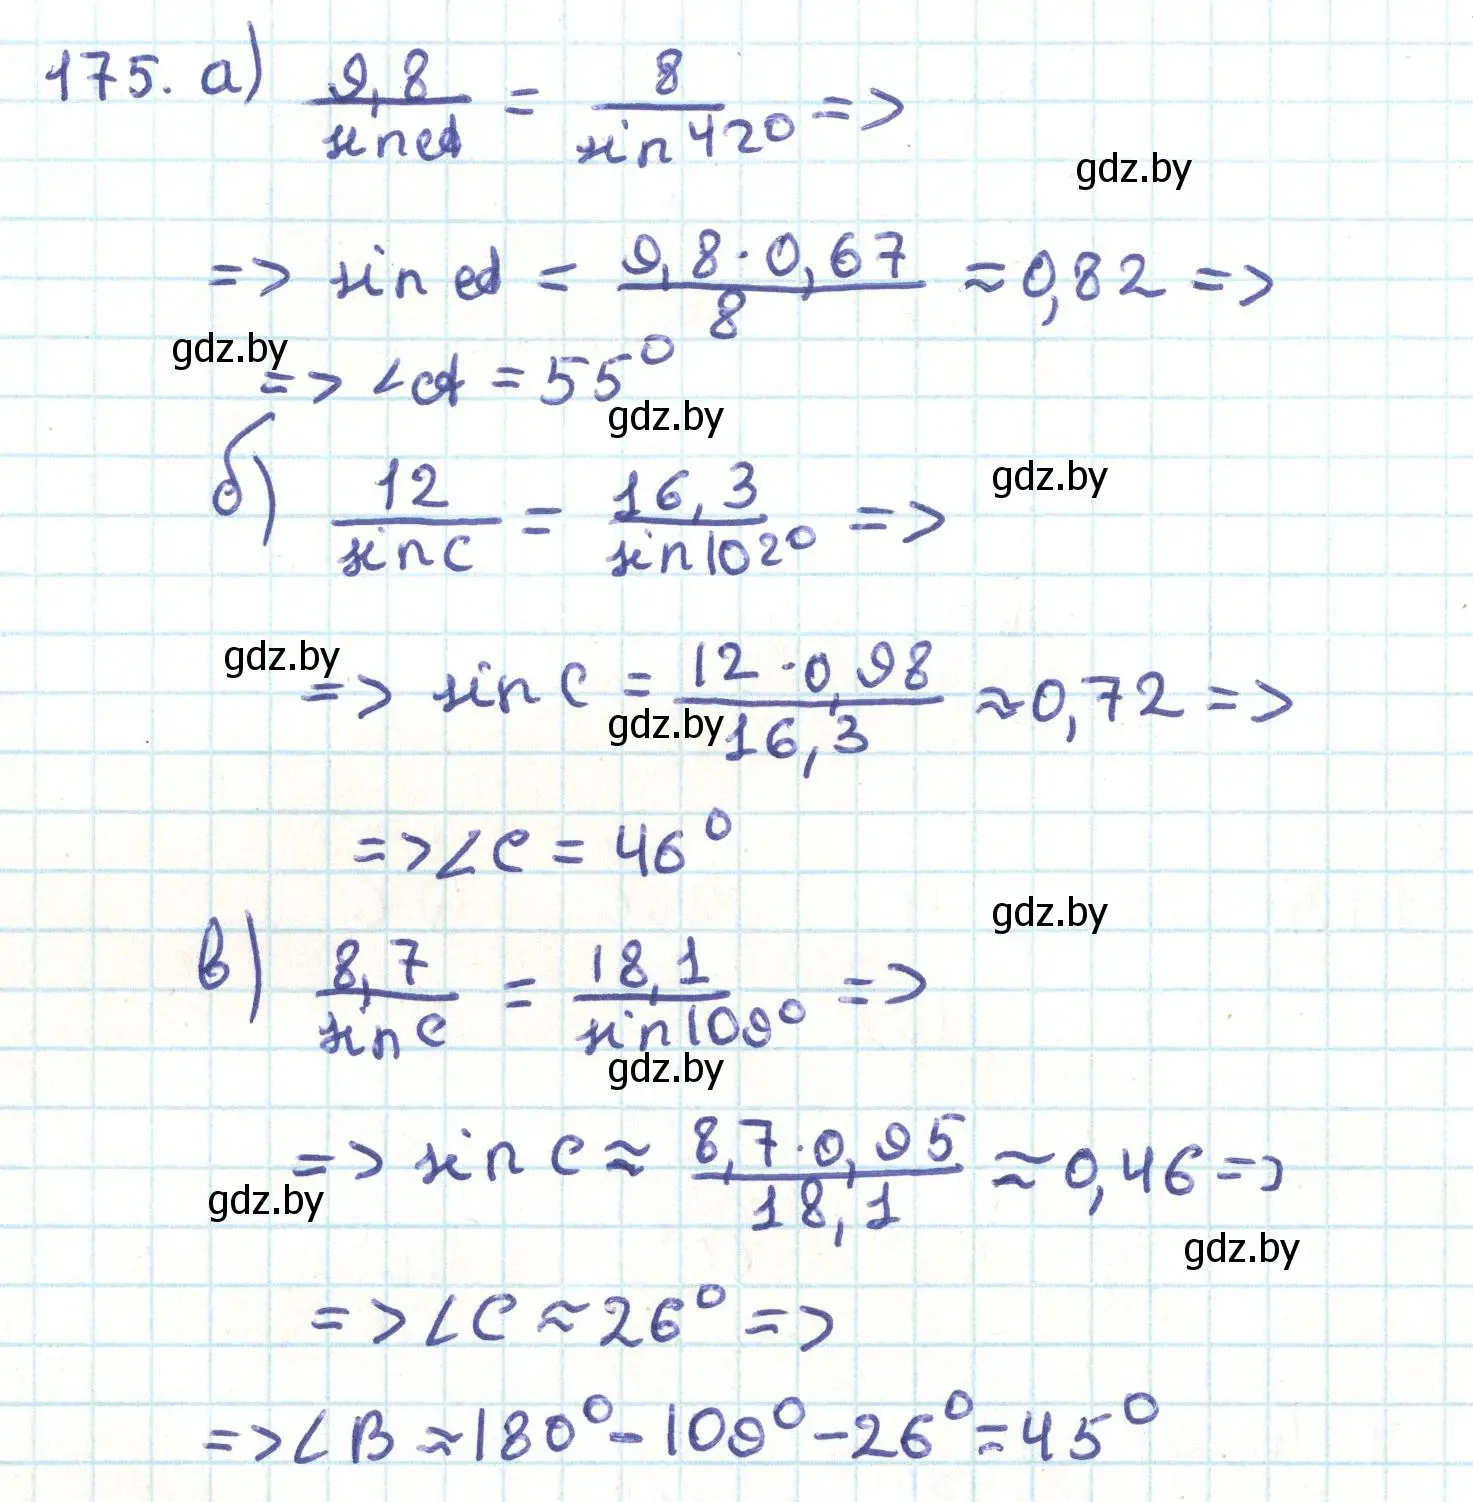 175. а) 9,8 / sin A = 8 / sin 42° =>
gdz.by
=> sin A = 9,8 · 0,67 / 8 ≈ 0,82 =>
gdz.by
=> ∠A = 55°
gdz.by
б) 12 / sin C = 16,3 / sin 102° =>
gdz.by
gdz.by
=> sin C = 12 · 0,98 / 16,3 ≈ 0,72 =>
gdz.by
=> ∠C = 46°
gdz.by
в) 8,7 / sin C = 18,1 / sin 109° =>
gdz.by
=> sin C ≈ 8,7 · 0,95 / 18,1 ≈ 0,46 =>
gdz.by
gdz.by
=> ∠C ≈ 26° =>
=> ∠B ≈ 180° - 109° - 26° = 45°